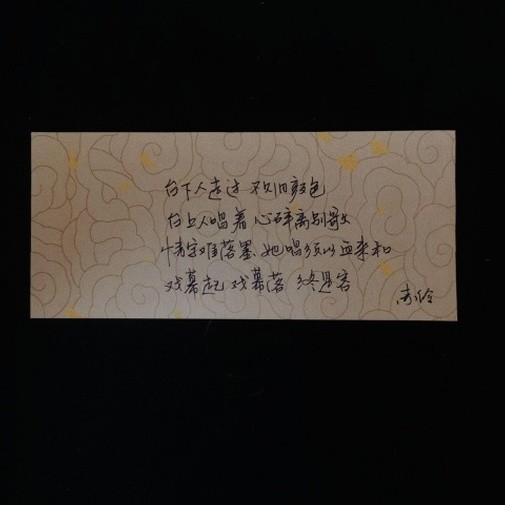 台下人走过 不见旧颜色
台上人唱着 心碎离别歌
情字难落墨 她唱须以血来和
戏幕起 戏幕落 终是客
赤伶